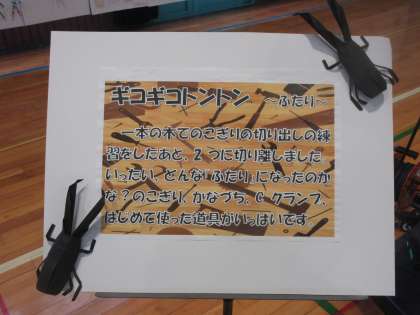 ギコギコトントン　～ふたり～
　一本の木でのこぎりの切り出しの練
習をしたあと、２つに切り離しました
いったい、どんな「ふたり」になったのか
な？のこぎり、かなづち、Ｃクランプ、
はじめて使った道具がいっぱいです